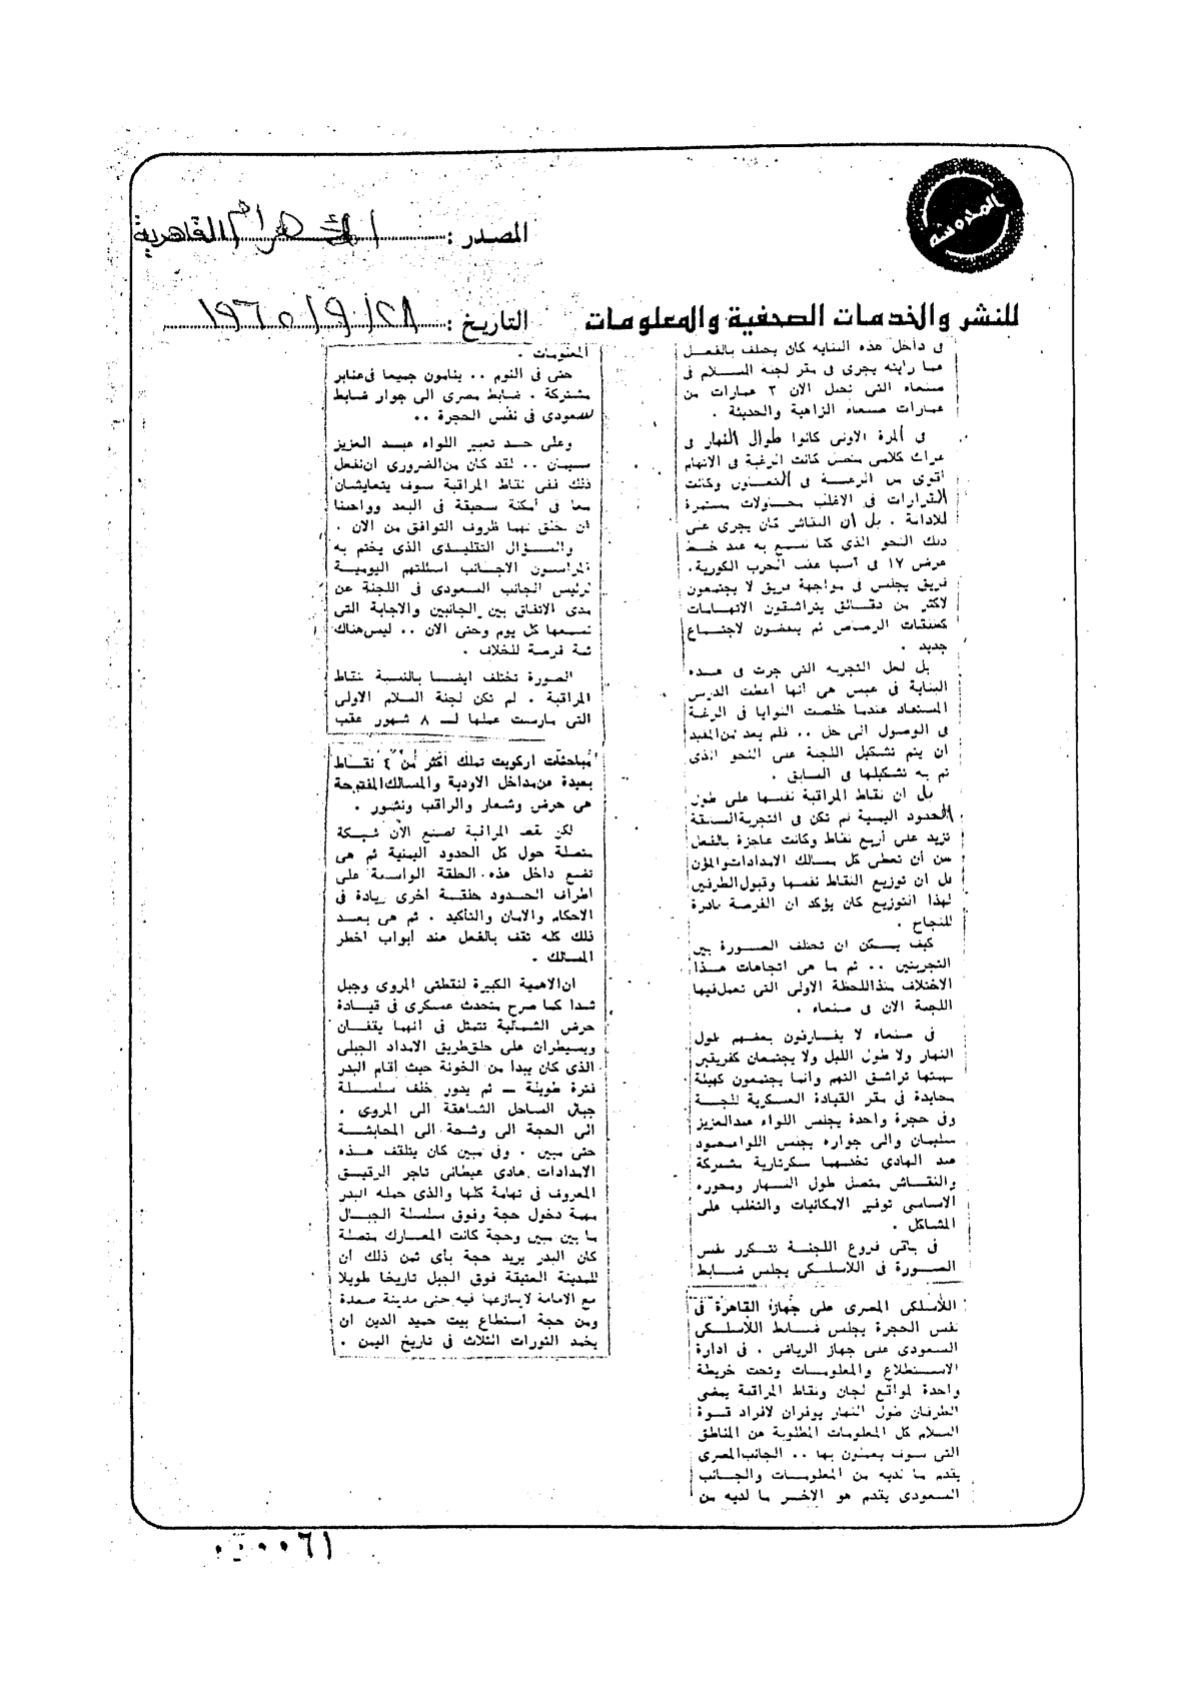 المحروسة
المصدر : الأهرام القاهرية
للنشر والخدمات الصحفية والمعلومات
التاريخ : ١٩٦٥/٩/٢٨
فى داخل هذه البناية كان يختلف بالفعل
عما رايته يجرى فى مقر لجنة السلام فى
صنعاء التى تحتل الان ٣ عمارات من
عمارات صنعاء الزاهية والحديثة .
فى المرة الاولى كانوا طوال النهار فى
عراك كلامى متصل كانت الرغبة فى الاتهام
أقوى من الرغبة فى التعاون وكانت
القرارات فى الاغلب محاولات مستمرة
للادانة . بل أن النقاش كان يجرى على
ذلك النحو الذى كنا نسمع به عند خط
عرض ١٧ فى آسيا عقب الحرب الكورية .
فريق يجلس فى مواجهة فريق لا يجتمعون
لاكثر من دقائق يتراشقون الاتهامات
كطلقات الرصاص ثم ينفضون لاجتماع
جديد .
بل لعل التجربة التى جرت فى هذه
البناية فى عبس هى أنها أعطت الدرس
المستفاد عندما خلصت النوايا فى الرغبة
فى الوصول الى حل .. فلم يعد من المفيد
أن يتم تشكيل اللجنة على النحو الذى
تم به تشكيلها فى السابق .
بل ان نقاط المراقبة نفسها على طول
الحدود اليمنية لم تكن فى التجربة السابقة
تزيد على أربع نقاط وكانت عاجزة بالفعل
عن أن تغطى كل مسالك الامدادات والمؤن
بل ان توزيع النقاط نفسها وقبول الطرفين
لهذا التوزيع كان يؤكد ان الفرصة نادرة
للنجاح .
كيف يمكن ان تختلف الصورة بين
التجربتين .. ثم ما هى اتجاهات هذا
الاختلاف منذ اللحظة الاولى التى تعمل فيها
اللجنة الان فى صنعاء .
فى صنعاء لا يفارقون بعضهم طول
النهار ولا طول الليل ولا يجتمعان كفريقين
مهمتها تراشق التهم وانما يجتمعون كهيئة
محايدة فى مقر القيادة العسكرية للجنة
وفى حجرة واحدة يجلس اللواء عبدالعزيز
سليمان والى جواره يجلس اللواء حمود
عبد الهادى تخدمهما سكرتارية مشتركة
والنقاش متصل طول النهار ومحوره
الاساسى توفير الامكانيات والتغلب على
المشاكل .
فى باقى فروع اللجنة تتكرر نفس
الصورة فى اللاسلكى يجلس ضابط
اللاسلكى المصرى على جهاز القاهرة فى
نفس الحجرة يجلس ضابط اللاسلكى
السعودى على جهاز الرياض . فى ادارة
الاستطلاع والمعلومات وتحت خريطة
واحدة لمواقع لجان ونقاط المراقبة يمضى
الطرفان طول النهار يوفران لافراد قوة
السلام كل المعلومات المطلوبة عن المناطق
التى سوف يعملون بها .. الجانب المصرى
يقدم ما لديه من المعلومات والجانب
السعودى يقدم هو الاخر ما لديه من
المعلومات .
حتى فى النوم .. ينامون جميعا فى عنابر
مشتركة . ضابط مصرى الى جوار ضابط
سعودى فى نفس الحجرة ..
وعلى حد تعبير اللواء عبد العزيز
سليمان .. لقد كان من الضرورى ان نفعل
ذلك ففى نقاط المراقبة سوف يتعايشان
معا فى أمكنة سحيقة فى البعد وواجبنا
ان نخلق لهما ظروف التوافق من الان .
والسؤال التقليدى الذى يختم به
المراسلون الاجانب اسئلتهم اليومية
لرئيس الجانب السعودى فى اللجنة عن
مدى الاتفاق بين الجانبين والاجابة التى
نسمعها كل يوم وحتى الان .. ليس هناك
ثمة فرصة للخلاف .
الصورة تختلف ايضا بالنسبة لنقاط
المراقبة . لم تكن لجنة السلام الاولى
التى مارست عملها لـ ٨ شهور عقب
مباحثات اركويت تملك أكثر من ٤ نقاط
بعيدة عن مداخل الاودية والمسالك المفتوحة
هى حرض وشعار والراقب ونشور .
لكن نقط المراقبة تصنع الآن شبكة
متصلة حول كل الحدود اليمنية ثم هى
تضع داخل هذه الحلقة الواسعة على
اطراف الحدود حلقة أخرى زيادة فى
الاحكام والامان والتأكيد . ثم هى بعد
ذلك كله تقف بالفعل عند أبواب اخطر
المسالك .
ان الاهمية الكبيرة لنقطتى المروى وجبل
شدا كما صرح متحدث عسكرى فى قيادة
حرض الشمالية تتمثل فى انهما يقفان
ويسيطران على حلق طريق الامداد الجبلى
الذى كان يبدأ من الخوبة حيث أقام البدر
فترة طويلة ــ ثم يدور خلف سلسلة
جبال الساحل الشاهقة الى المروى .
الى الحجة الى وشحة الى المحابشة
حتى مبين . وفى مبين كان يتلقف هذه
الامدادات هادى عيطانى تاجر الرقيق
المعروف فى تهامة كلها والذى حمله البدر
مهمة دخول حجة وفوق سلسلة الجبال
ما بين مبين وحجة كانت المعارك متصلة
كان البدر يريد حجة بأى ثمن ذلك أن
للمدينة العتيقة فوق الجبل تاريخا طويلا
مع الامامة لا ينازعها فيه حتى مدينة صعدة
ومن حجة استطاع بيت حميد الدين ان
يخمد الثورات الثلاث فى تاريخ اليمن .